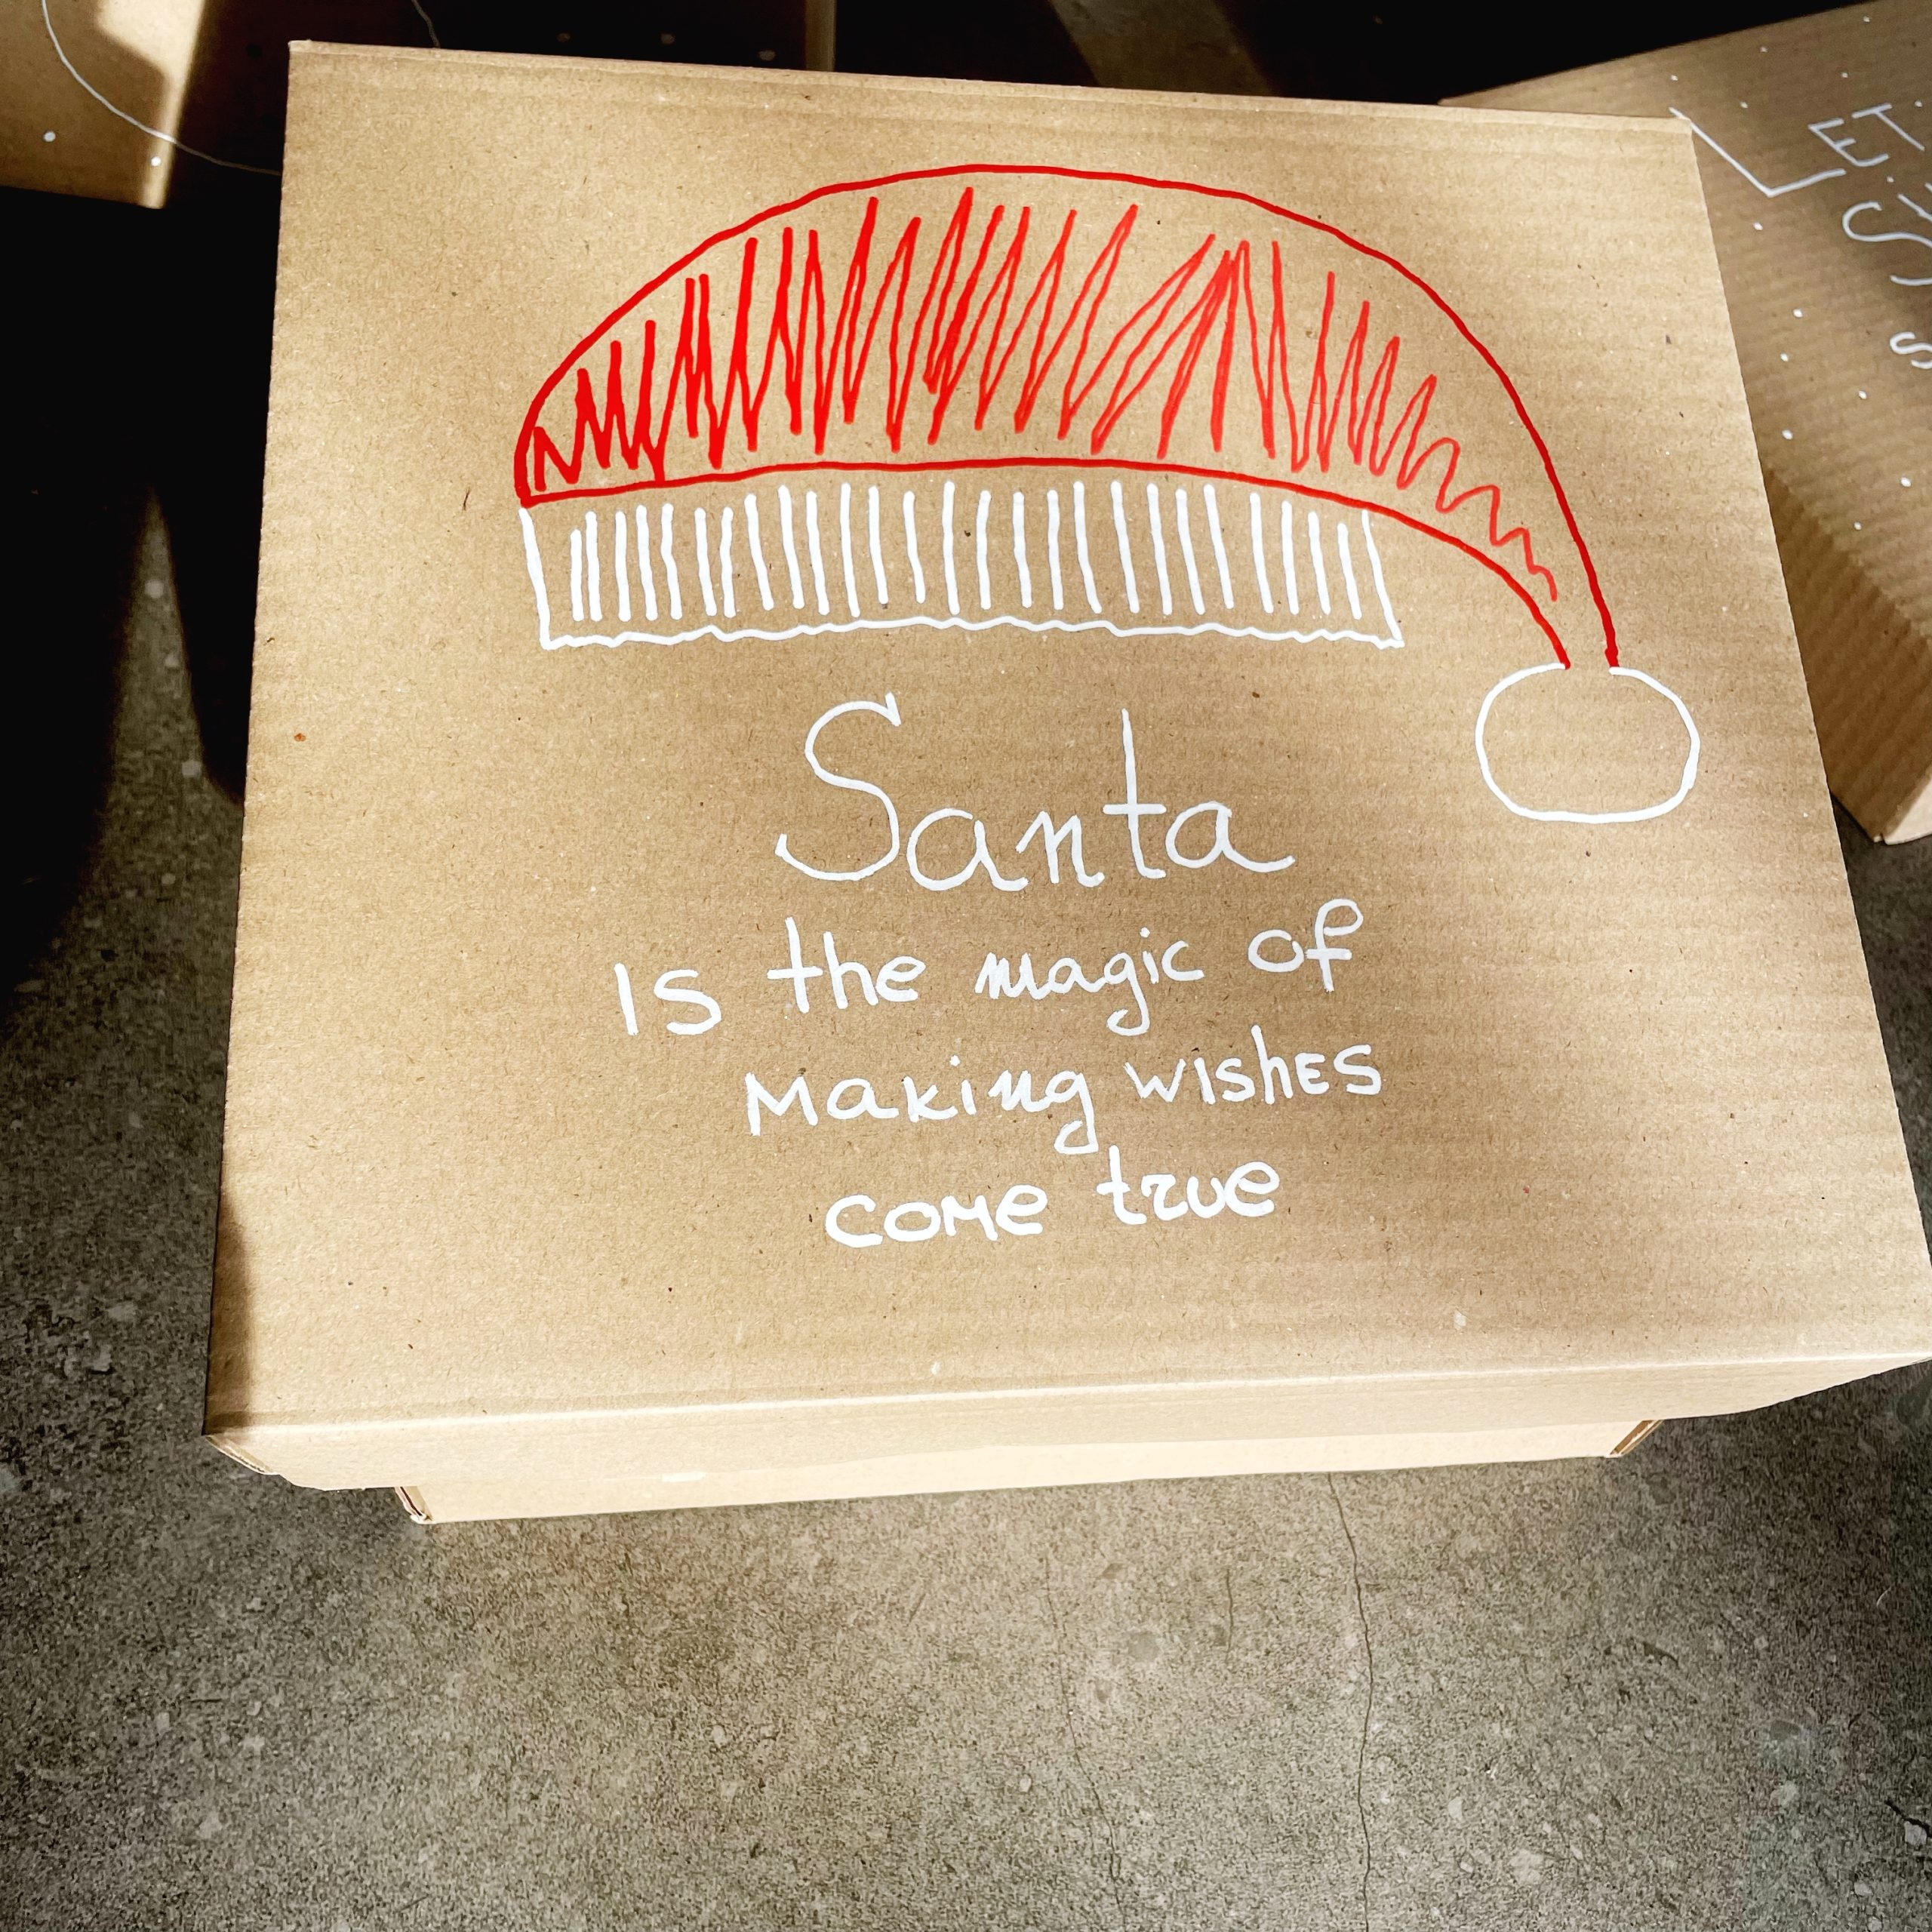 Santa
Is the magic of
Making wishes
come true
LET